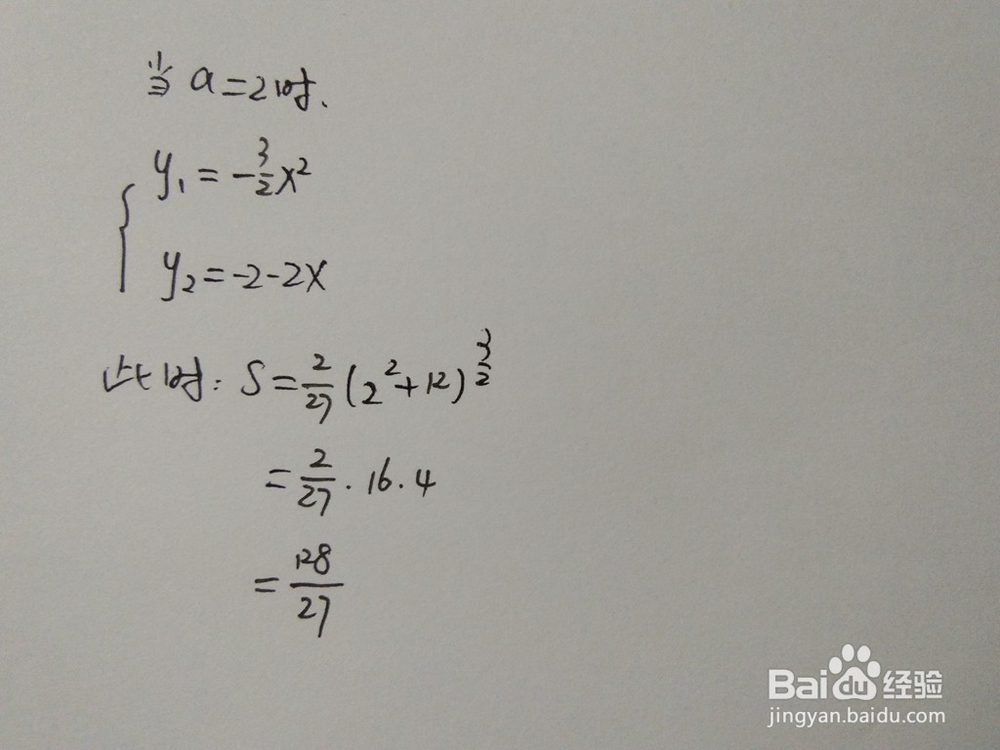 当 a=2时、
y₁=-3/2 x²
y₂=-2-2x
此时: S=2/27 (2²+12)^(3/2)
=2/27·16·4
=128/27
Baidu经验
jingyan.baidu.com